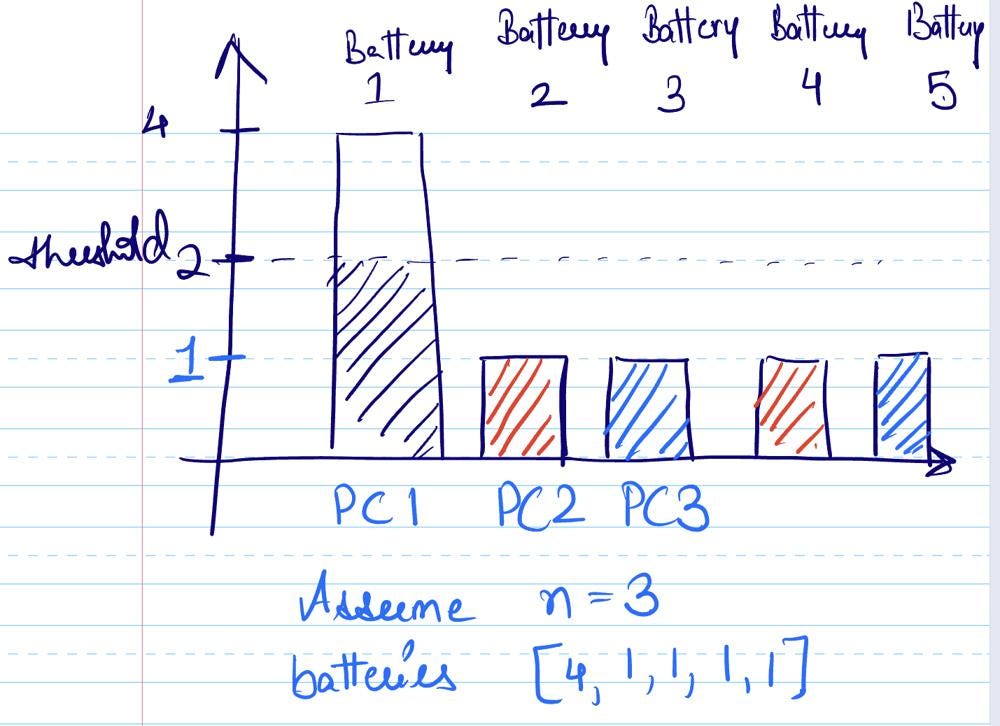 Battery Battery Battery Battery Battery
1 2 3 4 5
4
threshold 2
1
PC1 PC2 PC3
Assume n = 3
batteries [4, 1, 1, 1, 1]